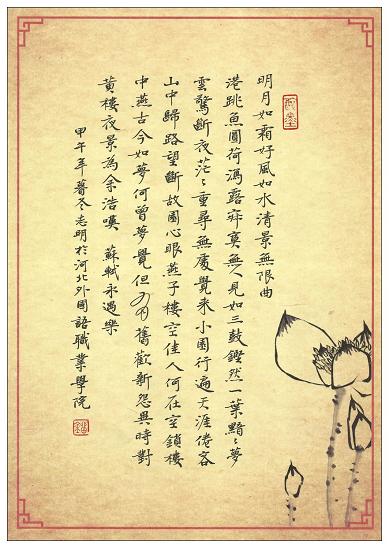 明月如霜好風如水清景無限曲
港跳魚圓荷瀉露寂寞無人見如三鼓鏗然一葉黯々夢
雲驚斷夜茫々重尋無處覺來小園行遍天涯倦客
山中歸路望斷故園心眼燕子樓空佳人何在空鎖樓
中燕古今如夢何曾夢覺但有舊歡新怨異時對
黃樓夜景為余浩嘆 蘇軾永遇樂
甲午年暮冬志明於河北外國語職業學院